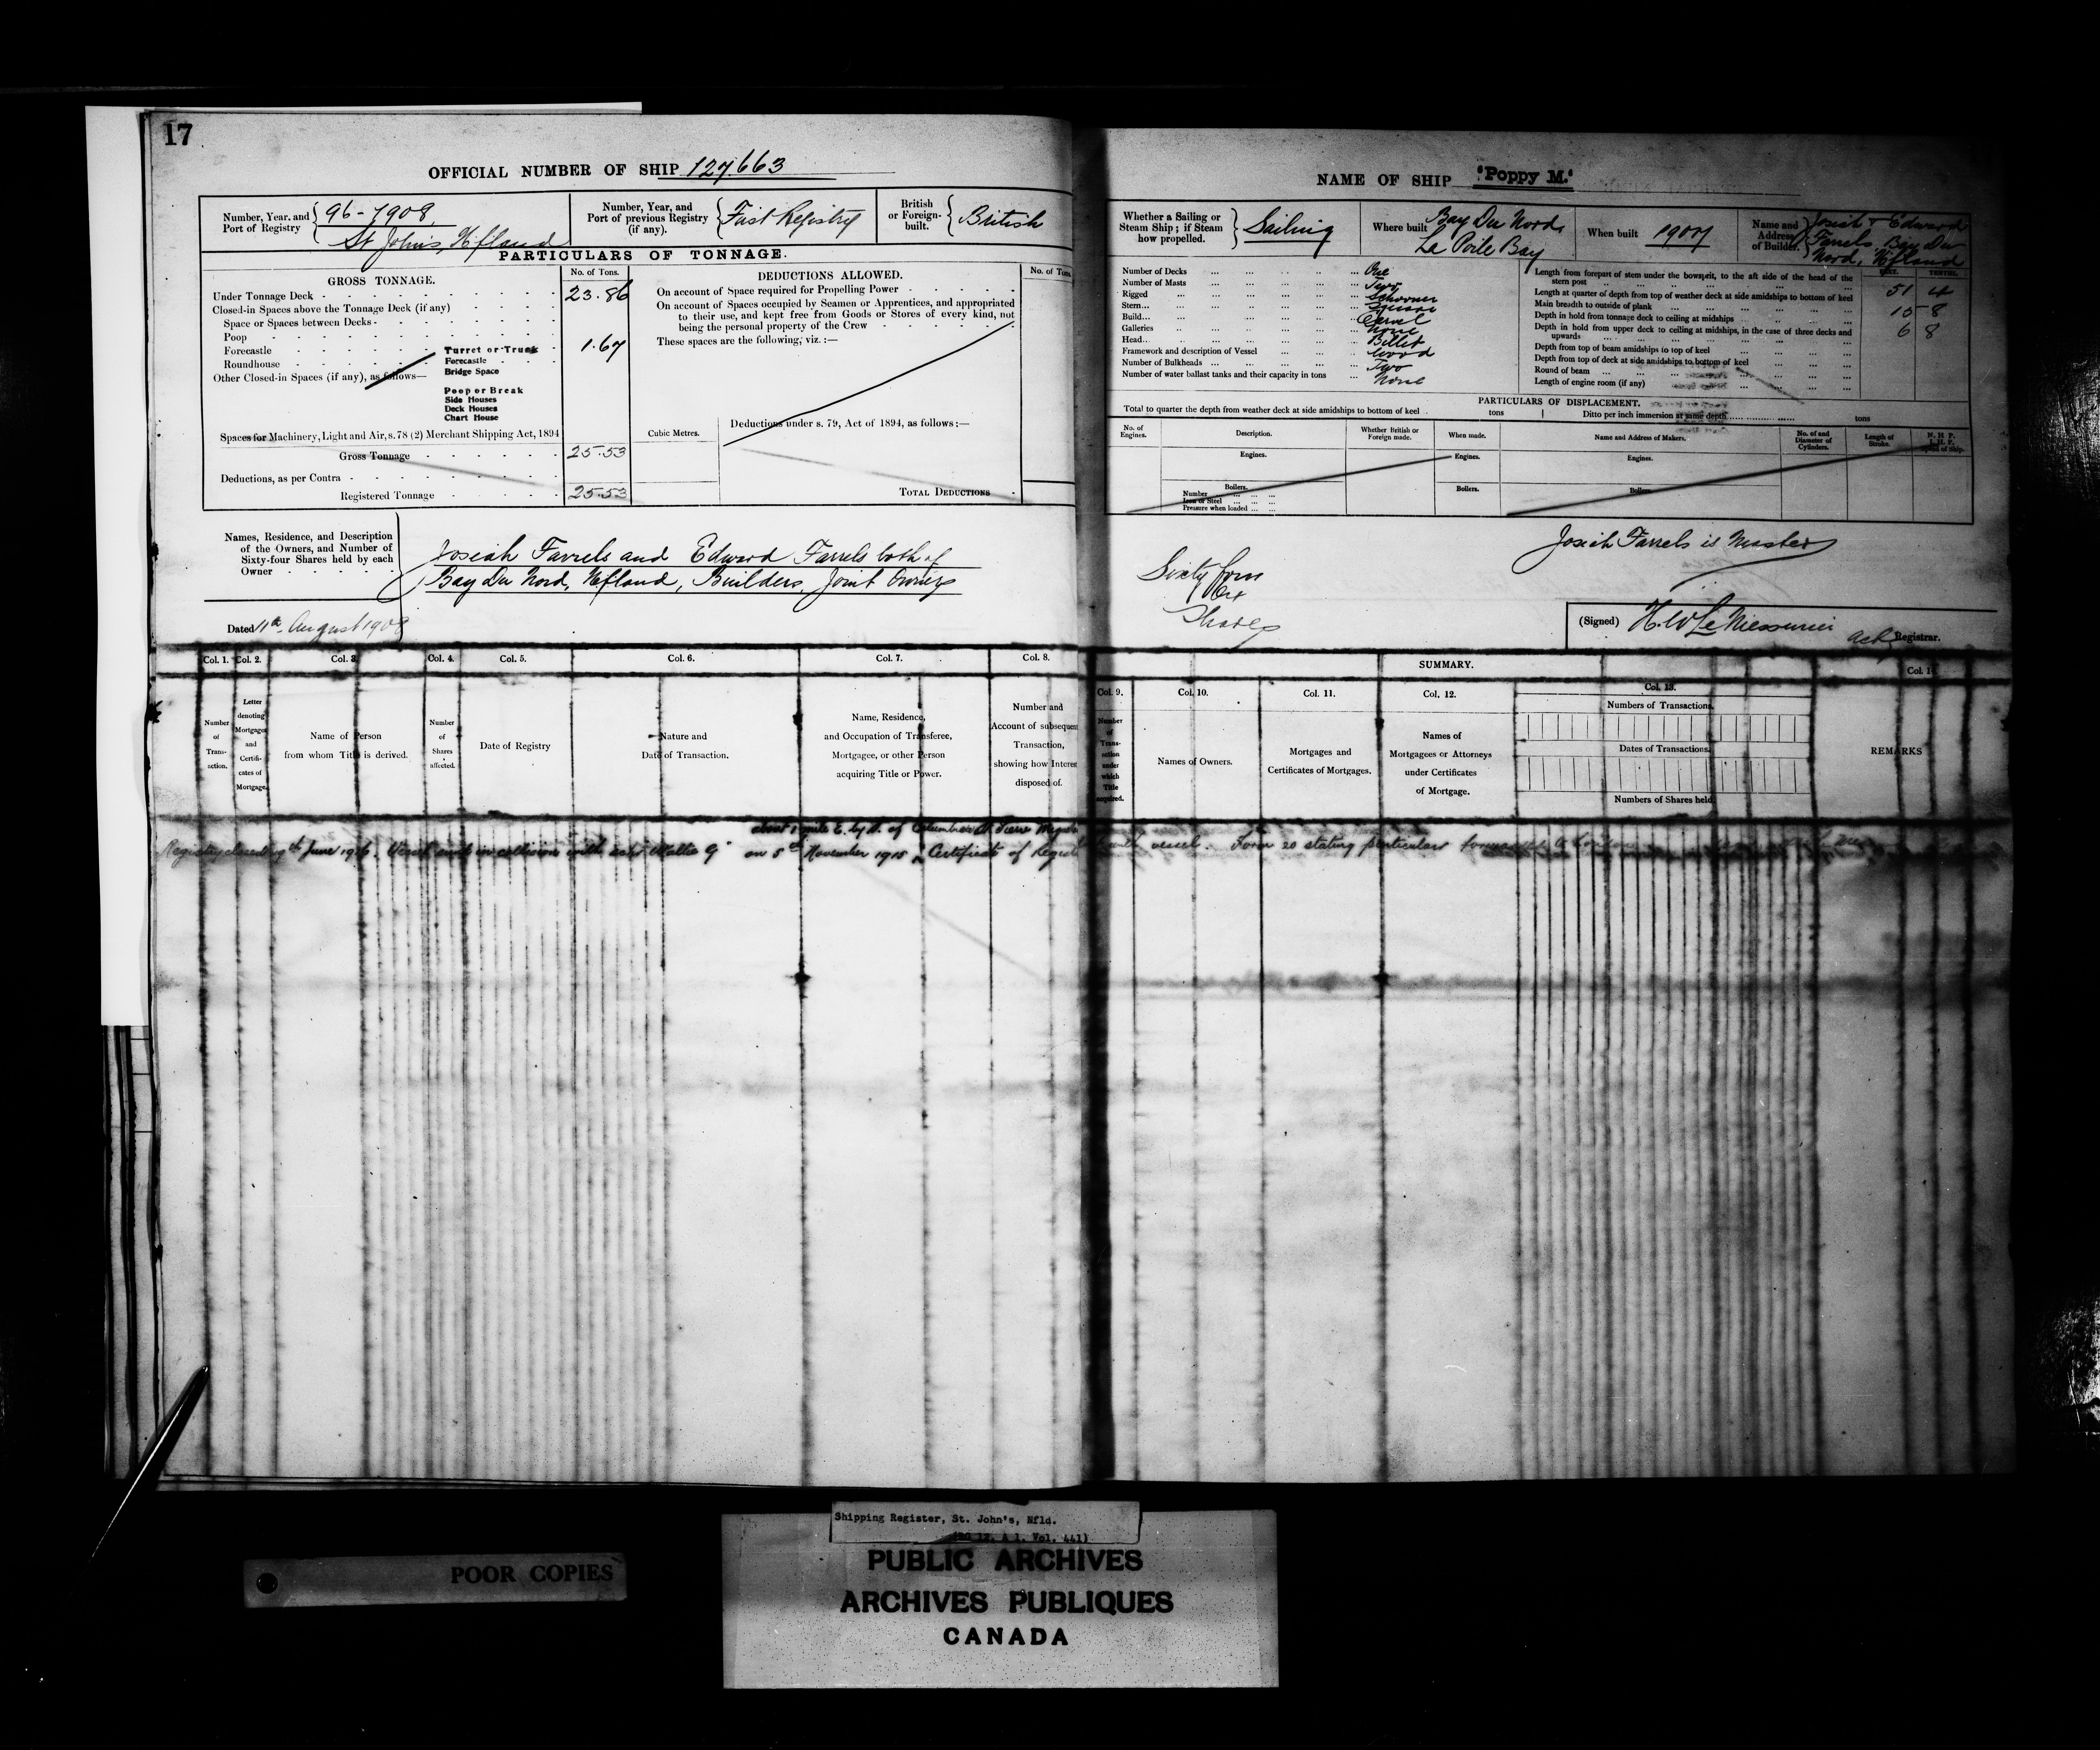 17
OFFICIAL NUMBER OF SHIP 127.663
Number, Year, and Port of Registry
96-1908
St John's, Nfland
Number, Year, and Port of previous Registry (if any).
First Registry
British or Foreign-built.
British
PARTICULARS OF TONNAGE.
GROSS TONNAGE.
No. of Tons.
Under Tonnage Deck 23.86
Closed-in Spaces above the Tonnage Deck (if any)
Space or Spaces between Decks
Poop
Forecastle
Roundhouse
Other Closed-in Spaces (if any), as follows—
Turret or Trunk 1.67
Forecastle
Bridge Space
Poop or Break
Side Houses
Deck Houses
Chart House
Spaces for Machinery, Light and Air, s. 78 (2) Merchant Shipping Act, 1894
Gross Tonnage 25.53
Deductions, as per Contra
Registered Tonnage 25.53
DEDUCTIONS ALLOWED.
No. of Tons
On account of Space required for Propelling Power
On account of Spaces occupied by Seamen or Apprentices, and appropriated
to their use, and kept free from Goods or Stores of every kind, not
being the personal property of the Crew
These spaces are the following, viz. :—
Cubic Metres.
Deductions under s. 79, Act of 1894, as follows:—
TOTAL DEDUCTIONS
Names, Residence, and Description
of the Owners, and Number of
Sixty-four Shares held by each
Owner
Josiah Farrels and Edward Farrels both of
Bay Du Nord, Nfland, Builders, Joint Owners
Dated 11th August 1908
NAME OF SHIP "Poppy M."
Whether a Sailing or Steam Ship; if Steam how propelled.
Sailing
Where built
Bay Du Nord,
La Poile Bay
When built
1907
Name and Address of Builder.
Josiah & Edward
Farrels, Bay Du
Nord, Nfland
Number of Decks One
Number of Masts Two
Rigged Schooner
Stern Square
Build Carvel
Galleries None
Head Billet
Framework and description of Vessel Wood
Number of Bulkheads Two
Number of water ballast tanks and their capacity in tons None
FEET. TENTHS.
Length from forepart of stem under the bowsprit, to the aft side of the head of the
stern post 51 4
Length at quarter of depth from top of weather deck at side amidships to bottom of keel
Main breadth to outside of plank 15 8
Depth in hold from tonnage deck to ceiling at midships 6 8
Depth in hold from upper deck to ceiling at midships, in the case of three decks and
upwards
Depth from top of beam amidships to top of keel
Depth from top of deck at side amidships to bottom of keel
Round of beam
Length of engine room (if any)
PARTICULARS OF DISPLACEMENT.
Total to quarter the depth from weather deck at side amidships to bottom of keel tons
Ditto per inch immersion at same depth tons
No. of Engines.
Description.
Whether British or Foreign made.
When made.
Name and Address of Makers.
No. of and Diameter of Cylinders.
Length of Stroke.
N. H. P.
I. H. P.
Speed of Ship.
Engines.
Engines.
Engines.
Boilers.
Number
Iron or Steel
Pressure when loaded
Boilers.
Boilers.
Josiah Farrels is Master
Sixty four
64
Shares
(Signed) H. W. LeMessurier
Actg Registrar.
Col. 1. Col. 2. Col. 3. Col. 4. Col. 5. Col. 6. Col. 7. Col. 8.
Number of Transaction.
Letter denoting Mortgages and Certificates of Mortgage.
Name of Person from whom Title is derived.
Number of Shares affected.
Date of Registry
Nature and Date of Transaction.
Name, Residence, and Occupation of Transferee, Mortgagee, or other Person acquiring Title or Power.
Number and Account of subsequent Transaction, showing how Interest disposed of.
SUMMARY.
Col. 9. Col. 10. Col. 11. Col. 12. Col. 13.
Number of Transaction under which Title acquired.
Names of Owners.
Mortgages and Certificates of Mortgages.
Names of Mortgagees or Attorneys under Certificates of Mortgage.
Numbers of Transactions.
Dates of Transactions.
Numbers of Shares held
REMARKS
about 1 mile E. by S. of
Registry closed June 1916. Vessel sunk in collision with on 5th November 1915. Certificate of Registry vessel. Form 20 stating particulars forwarded to London
Shipping Register, St. John's, Nfld.
(RG 12, A 1, Vol. 441)
POOR COPIES
PUBLIC ARCHIVES
ARCHIVES PUBLIQUES
CANADA